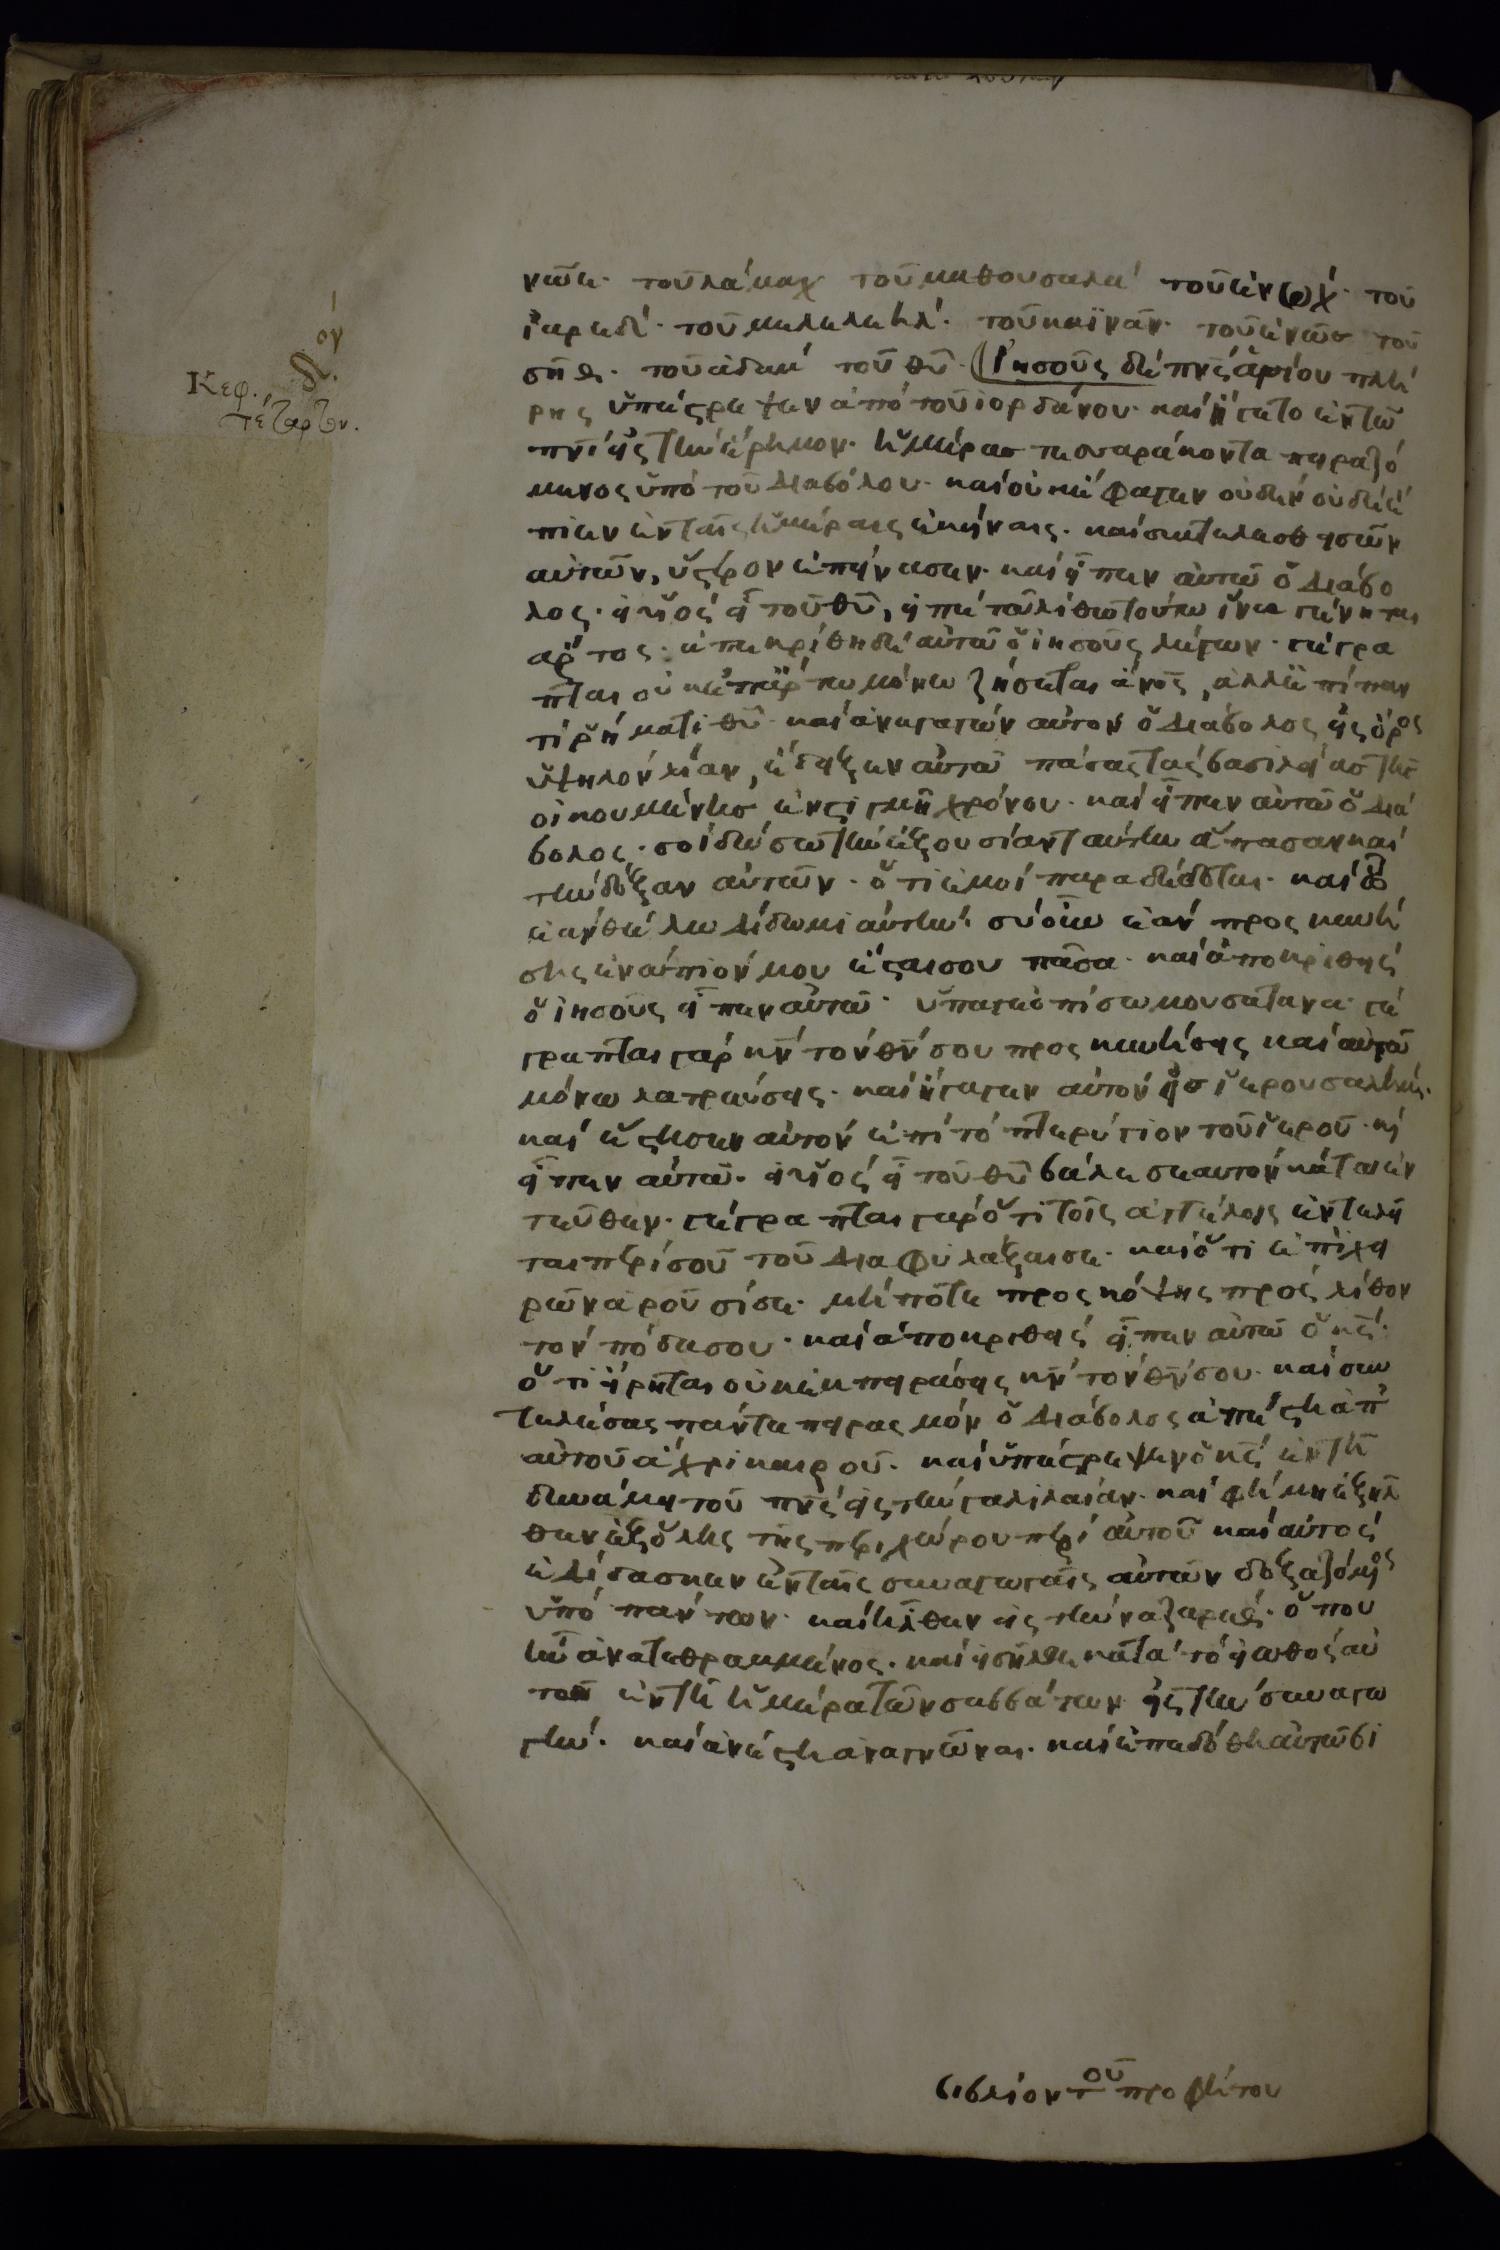 Κεφ. δ.ον
τέταρτον.
νῶε· τοῦ λάμεχ τοῦ μαθουσαλά τοῦ ἐνώχ· τοῦ
ἰαρέδ· τοῦ μαλελεήλ· τοῦ καϊνᾶν· τοῦ ἐνῶσ τοῦ
σήθ· τοῦ ἀδάμ τοῦ θῦ· Ἰησοῦς δέ πνς ἁγίου πλή
ρης ὑπέστρεψεν ἀπό τοῦ ἰορδάνου· καί ἤγετο ἐν τῶ
πνί εἰς τήν ἔρημον· ἡμέρασ τεσσαράκοντα πειραζό
μενος ὑπό τοῦ διαβόλου· καί οὐκ ἔφαγεν οὐδέν οὐδέ ἔ
πιεν ἐν ταῖς ἡμέραις ἐκείναις· καί συντελεσθεισῶν
αὐτῶν, ὕστερον ἐπείνασεν· καί εἶπεν αὐτῶ ὁ διάβο
λος· εἰ υἱός εἶ τοῦ θῦ, εἰπέ τῶ λίθω τούτω ἵνα γένηται
ἄρτος· ἀπεκρίθη δέ αὐτῶ ὁ ἰησοῦς λέγων· γέγρα
πται οὐκ ἐπ ἄρτω μόνω ζήσεται ἄνος, ἀλλ ἐπί παν
τί ῥήματι θῦ· καί ἀναγαγών αὐτον ὁ διάβολος εἰς ὄρος
ὑψηλόν λίαν, ἔδειξεν αὐτῶ πάσας τάς βασιλείασ τῆς
οἰκουμένησ ἐν στιγμῆ χρόνου· καί εἶπεν αὐτῶ ὁ διά
βολος· σοί δώσω τήν ἐξουσίαν ταύτην ἅπασαν καί
τήν δόξαν αὐτῶν· ὅτι ἐμοί παραδέδοται· καί ὧ
ἐάν θέλω δίδωμι αὐτήν· σύ οὖν ἐάν προσκυνή
σης ἐνώπιόν μου ἔσται σου πᾶσα· καί ἀποκριθείς
ὁ ἰησοῦς εἶπεν αὐτῶ· ὕπαγε ὀπίσω μου σατανα· γέ
γραπται γάρ κν τόν θν σου προσκυνήσεις καί αὐτῶ
μόνω λατρεύσεις· καί ἤγαγεν αὐτόν εἰσ ἱερουσαλήμ·
καί ἔστησεν αὐτόν ἐπί τό πτερύγιον τοῦ ἱεροῦ· κ
εἶπεν αὐτῶ· εἰ υἱός εἶ τοῦ θῦ βάλε σεαυτόν κάτω ἐν
τεῦθεν· γέγραπται γάρ ὅτι τοῖς ἀγγέλοις ἐντελεῖ
ται περί σοῦ τοῦ διαφυλάξαι σε· καί ὅτι ἐπί χει
ρῶν ἀροῦσί σε· μήποτε προσκόψης πρός λίθον
τόν πόδα σου· καί ἀποκριθείς εἶπεν αὐτῶ ὁ ις·
ὅτι εἴρηται οὐκ ἐκπειράσεις κν τόν θν σου· καί συν
τελέσας πάντα πειρασμόν ὁ διάβολος ἀπέστη ἀπ
αὐτοῦ ἄχρι καιροῦ· καί ὑπέστρεψεν ὁ ις ἐν τῆ
δυνάμει τοῦ πνς εἰς τήν γαλιλαίαν· καί φήμη ἐξῆλ
θεν ἐξ ὅλης τῆς περιχώρου περί αὐτοῦ καί αὐτός
ἐδίδασκεν ἐν ταῖς συναγωγαῖς αὐτῶν δοξαζόμενος
ὑπό πάντων· καί ἦλθεν εἰς τήν ναζαρέθ· ὅπου
ἦν ἀνατεθραμμένος· καί εἰσῆλθε κατά τό εἰωθός αὐ
τοῦ ἐν τῆ ἡμέρα τῶν σαββάτων εἰς τήν συναγω
γήν· καί ἀνέστη ἀναγνῶναι· καί ἐπεδόθη αὐτῶ βι
βιβλίον τοῦ προφήτου